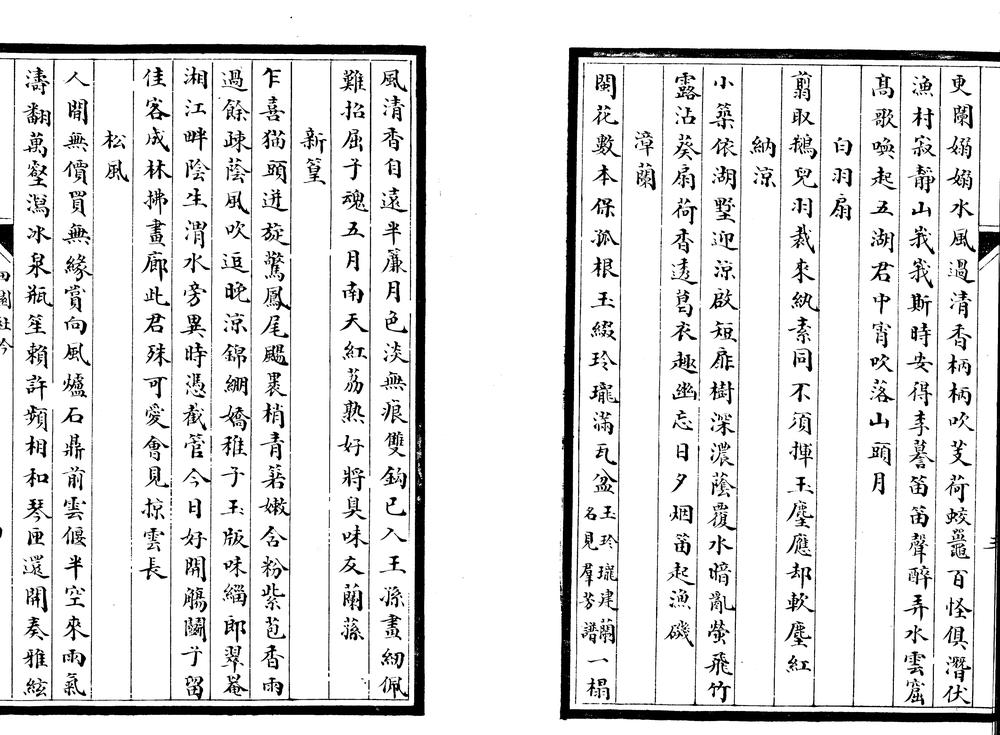 更闌嫋嫋水風過清香柄柄吹芰荷蛟鼉百怪俱潛伏
漁村寂靜山峩峩斯時安得李謩笛笛聲醉弄水雲窟
髙歌喚起五湖君中宵吹落山頭月
白羽扇
翦取鵝兒羽裁來紈素同不須揮玉麈應却軟塵紅
納涼
小築依湖墅迎涼啟短扉樹深濃蔭覆水暗亂螢飛竹
露沾葵扇荷香透葛衣趣幽忘日夕烟笛起漁磯
漳蘭
閩花數本保孤根玉綴玲瓏滿瓦盆玉玲瓏建蘭名見羣芳譜一榻
風清香自遠半簾月色淡無痕雙鈎已入王孫畫紉佩
難招屈子魂五月南天紅荔熟好將臭味友蘭蓀
新篁
乍喜猫頭迸旋驚鳳尾颺褁梢青箬嫩含粉紫苞香雨
過餘疎蔭風吹逗晚涼錦綳嬌稚子玉版味緇郎翠菴
湘江畔陰生渭水旁異時憑截管今日好開觴闢予留
佳客成林拂畫廊此君殊可愛會見掠雲長
松風
人間無價買無緣賞向風爐石鼎前雲偃半空來雨氣
濤翻萬壑瀉冰泉瓶笙賴許頻相和琴匣還開奏雅絃